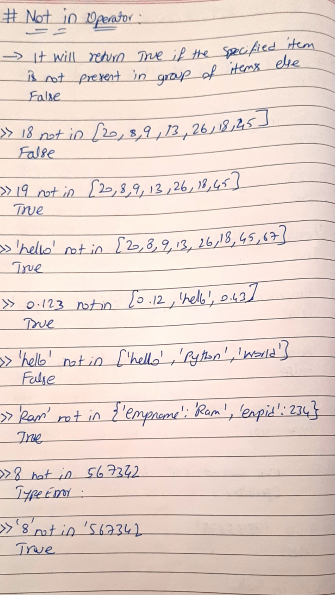 # Not in Operator:
→ It will return True if the specified item
is not present in group of items else
False
>> 18 not in [20,8,9,13,26,18,45]
False
>> 19 not in [20,8,9,13,26,18,45]
True
>> 'hello' not in [20,8,9,13,26,18,45,67]
True
>> 0.123 not in [0.12,'hello',0.43]
True
>> 'hello' not in ['hello','Python','World']
False
>> 'Ram' not in {'empname':'Ram','empid':234}
True
>> 8 not in 567342
TypeError:
>> '8' not in '567342
True